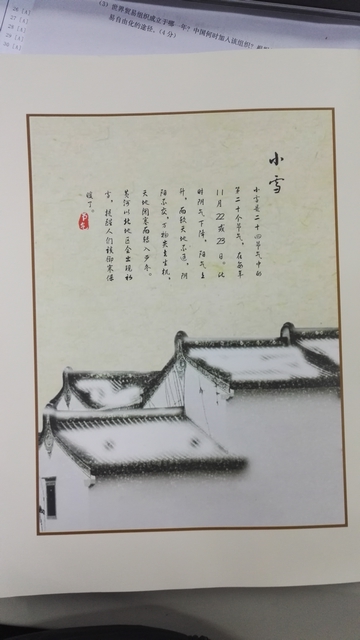 (3) 世界贸易组织成立于哪一年？中国何时加入该组织？
易自由化的途径。(4 分)
26 [A]
27 [A]
28 [A]
29 [A]
30 [A]
小雪
小雪是二十四节气中的
第二十个节气，在每年
11月22或23日。此
时阴气下降，阳气上
升，而致天地不通，阴
阳不交，万物失去生机，
天地闭塞而转入严冬。
黄河以北地区会出现初
雪，提醒人们该御寒保
暖了。